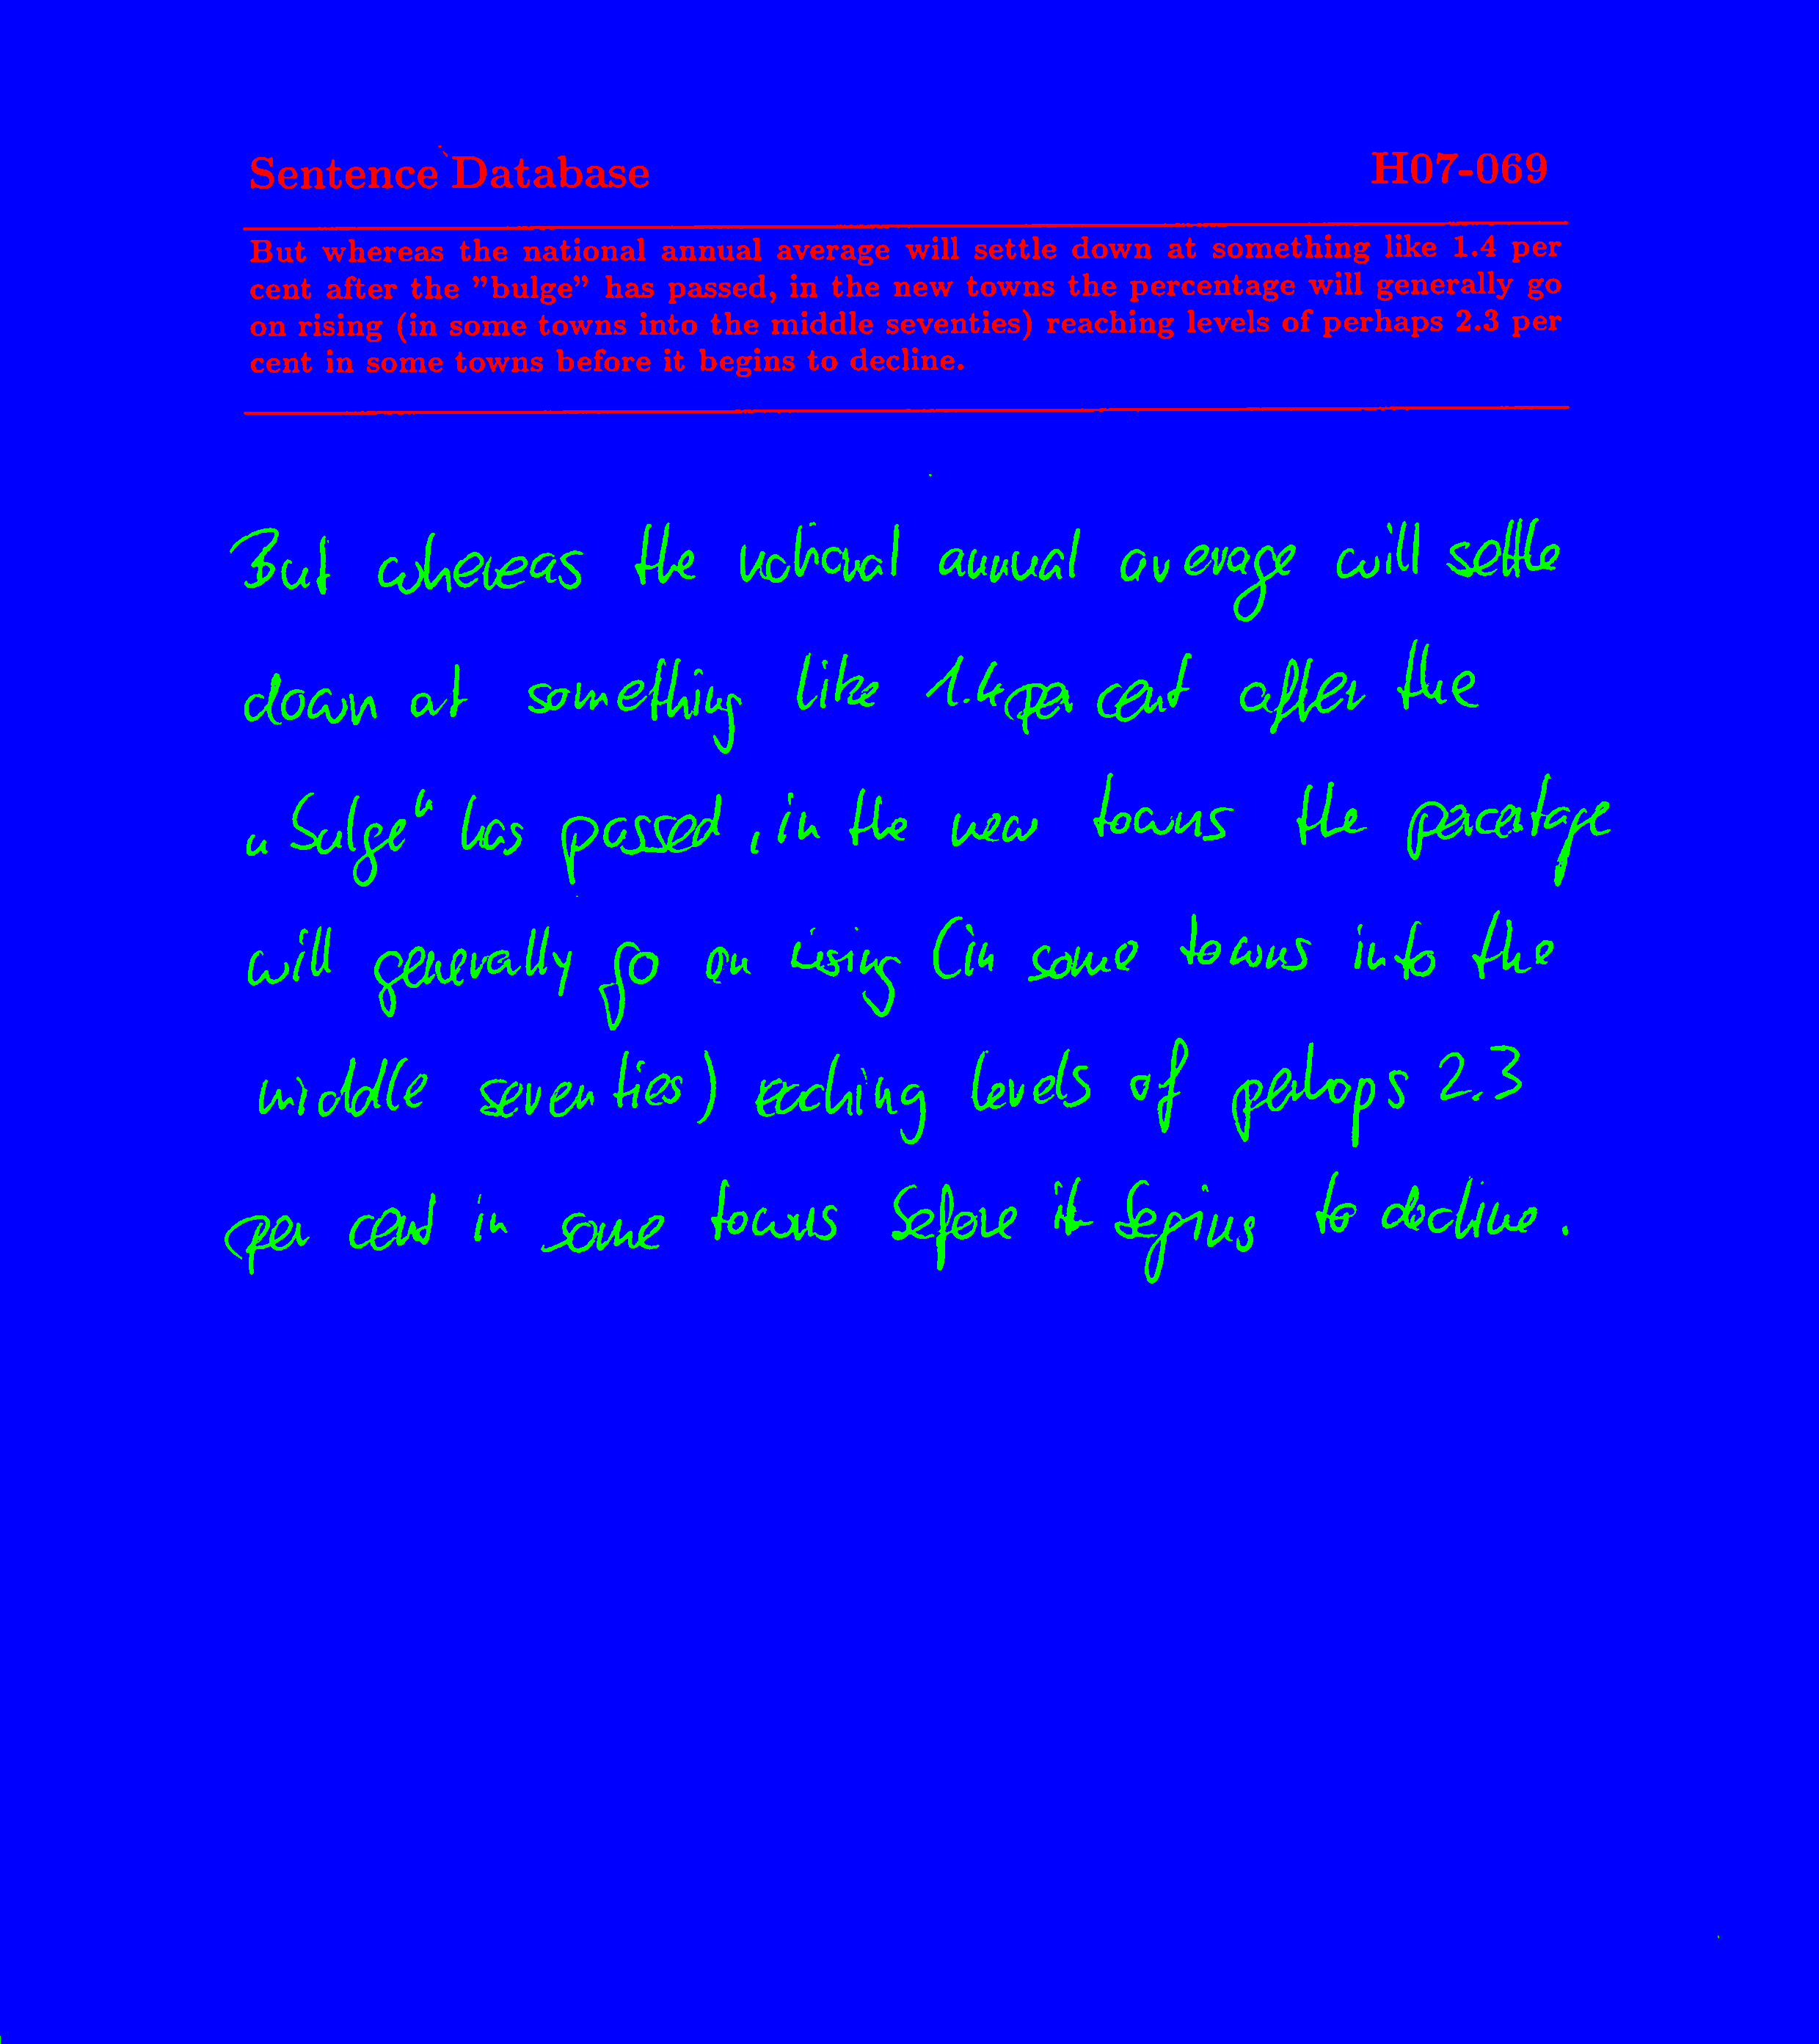 Sentence Database H07-069
But whereas the national annual average will settle down at something like 1.4 per
cent after the "bulge" has passed, in the new towns the percentage will generally go
on rising (in some towns into the middle seventies) reaching levels of perhaps 2.3 per
cent in some towns before it begins to decline.
But whereas the national annual average will settle
down at something like 1.4 per cent after the
"bulge" has passed, in the new towns the percentage
will generally go on rising (in some towns into the
middle seventies) reaching levels of perhaps 2.3
per cent in some towns before it begins to decline.